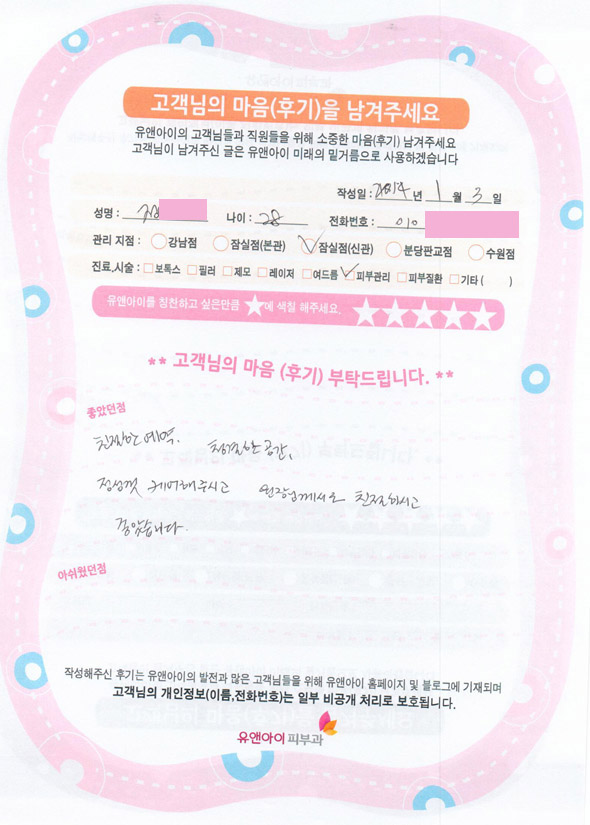 고객님의 마음(후기)을 남겨주세요
유앤아이의 고객님들과 직원들을 위해 소중한 마음(후기) 남겨주세요
고객님이 남겨주신 글은 유앤아이 미래의 밑거름으로 사용하겠습니다
작성일 : 2014 년 1 월 3 일
성명 : 나이 : 28 전화번호 : 010
관리 지점 : 강남점 잠실점(본관) 잠실점(신관) 분당판교점 수원점
진료,시술 : 보톡스 필러 제모 레이저 여드름 피부관리 피부질환 기타 ( )
유앤아이를 칭찬하고 싶은만큼 ★에 색칠 해주세요. ★★★★★
** 고객님의 마음 (후기) 부탁드립니다. **
좋았던점
친절한 예약. 청결한 공간,
정성껏 케어해주시고 원장님께서도 친절하시고
좋았습니다.
아쉬웠던점
작성해주신 후기는 유앤아이의 발전과 많은 고객님들을 위해 유앤아이 홈페이지 및 블로그에 기재되며
고객님의 개인정보(이름,전화번호)는 일부 비공개 처리로 보호됩니다.
유앤아이 피부과